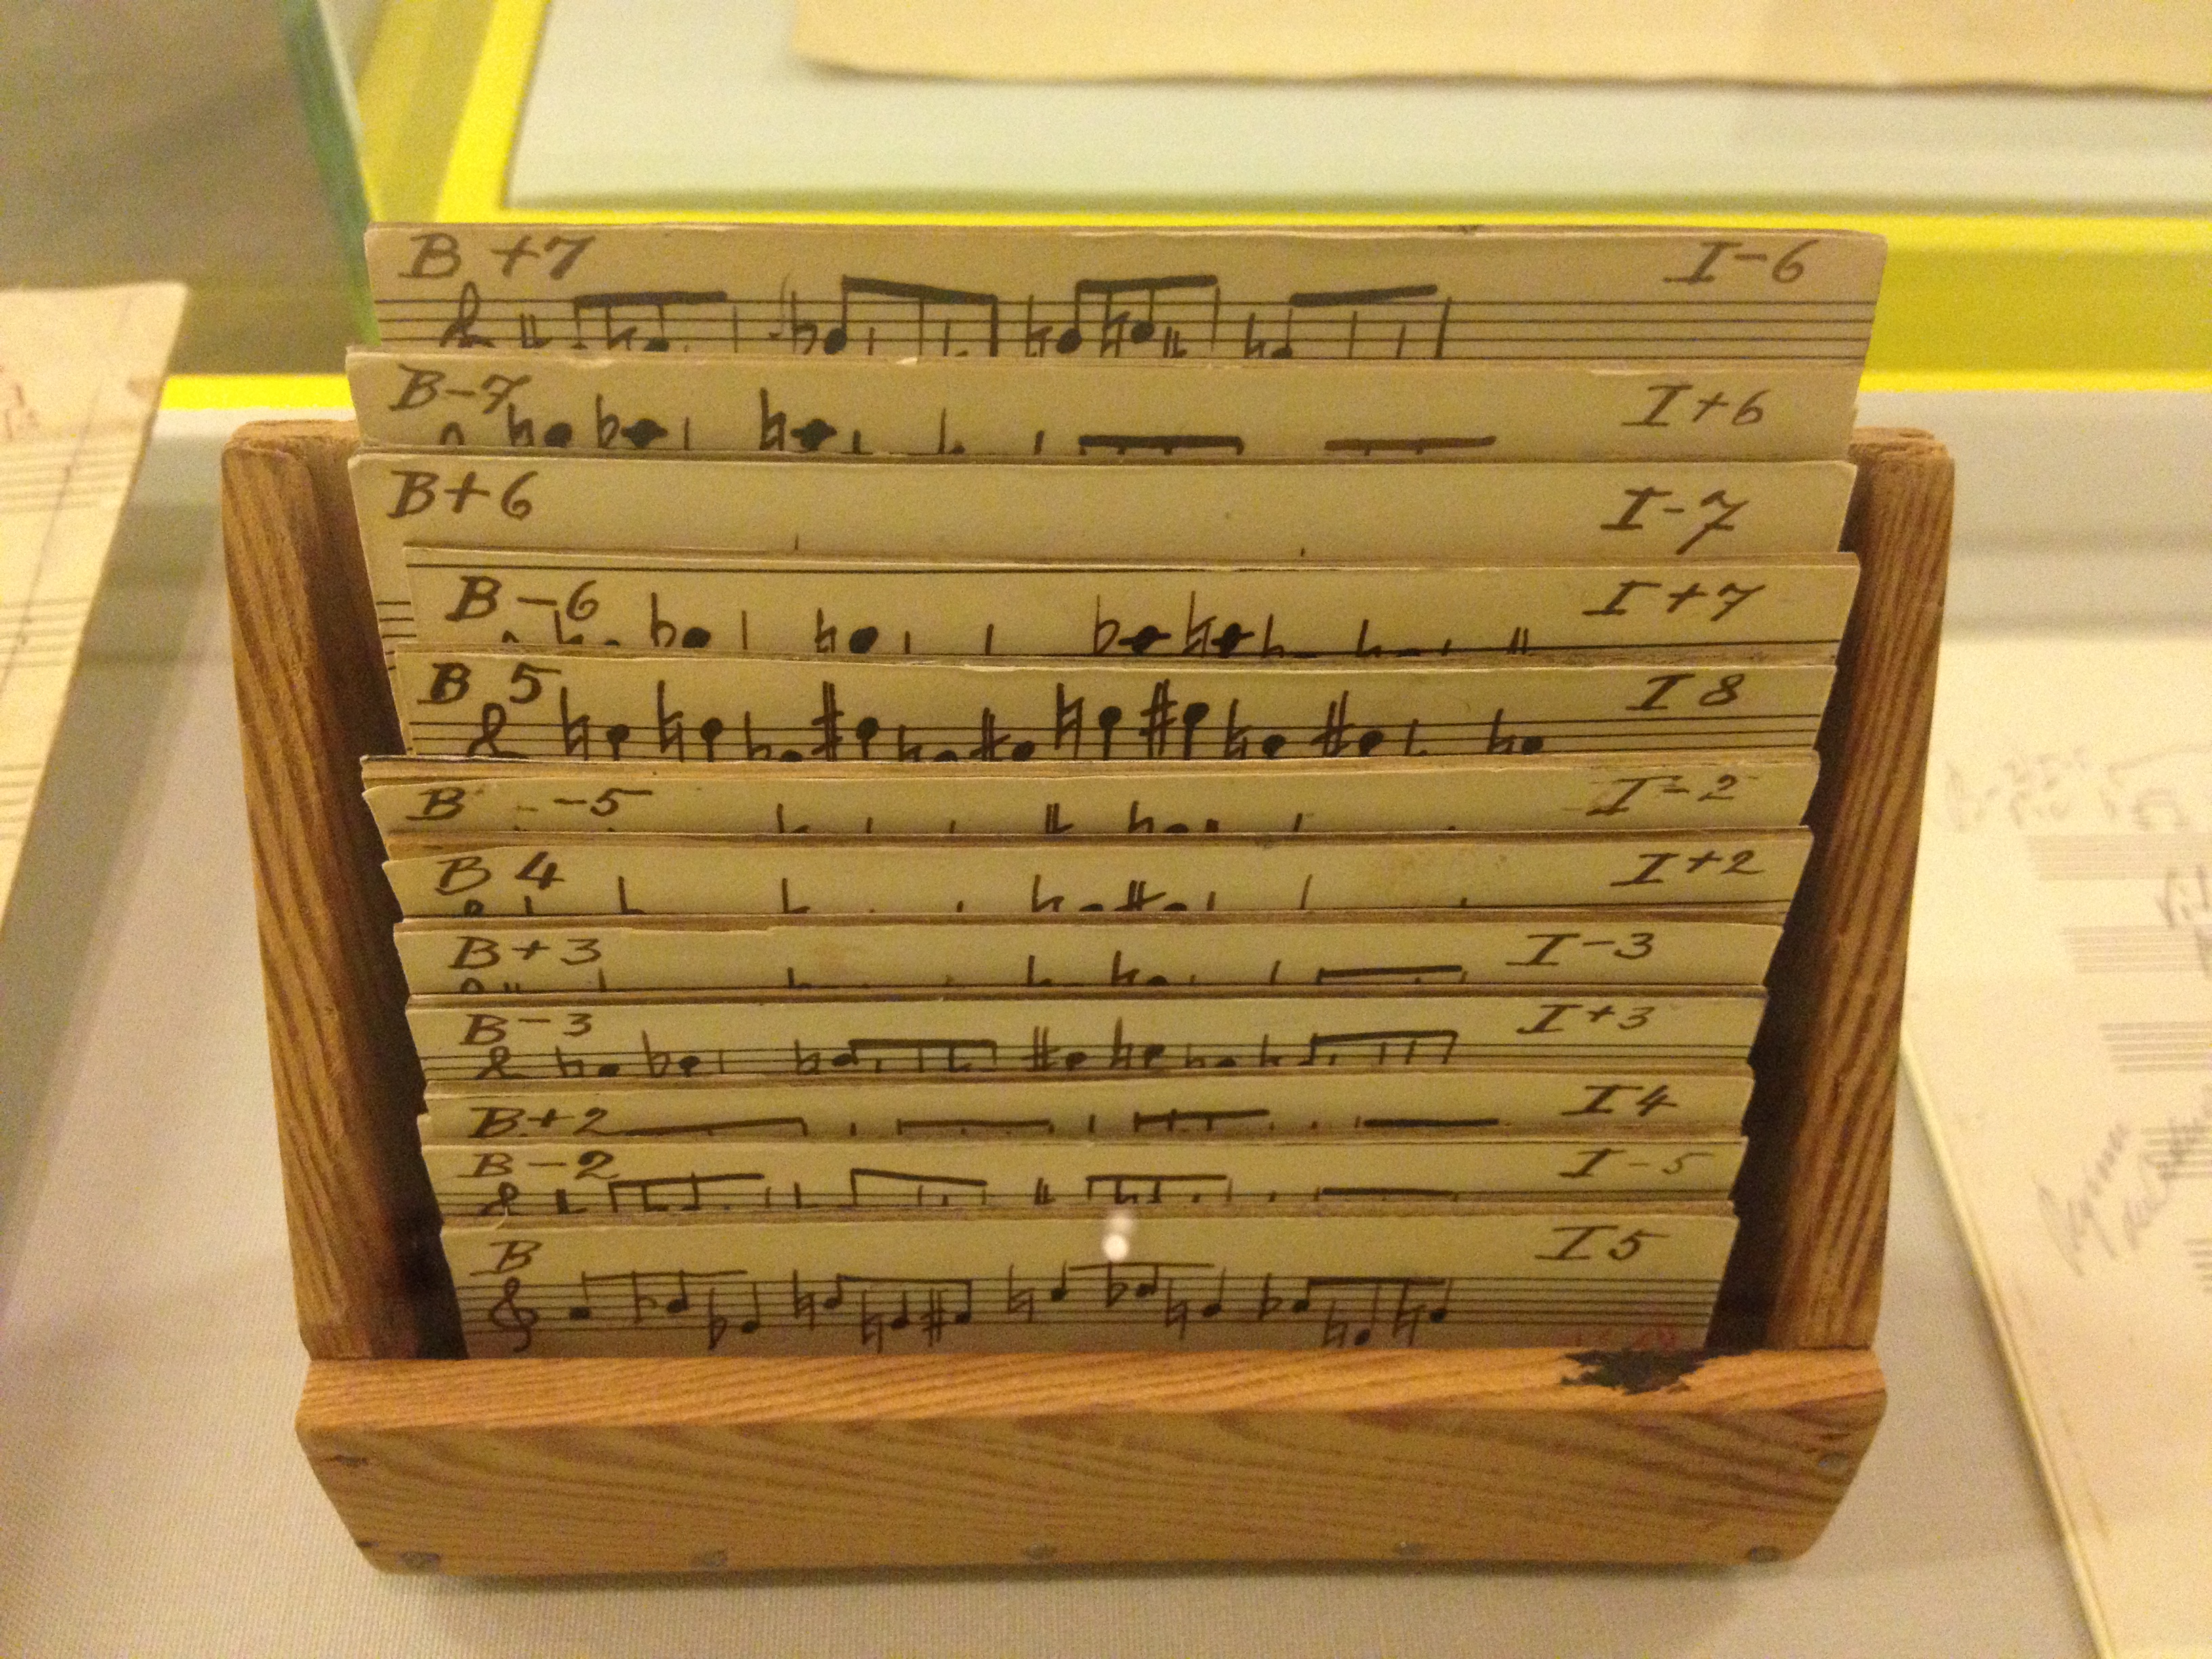 B +7 I-6
B-7 I+6
B+6 I-7
B-6 I+7
B 5 I 8
B -5 I-2
B 4 I+2
B+3 I-3
B-3 I+3
B+2 I 4
B-2 I-5
B I 5